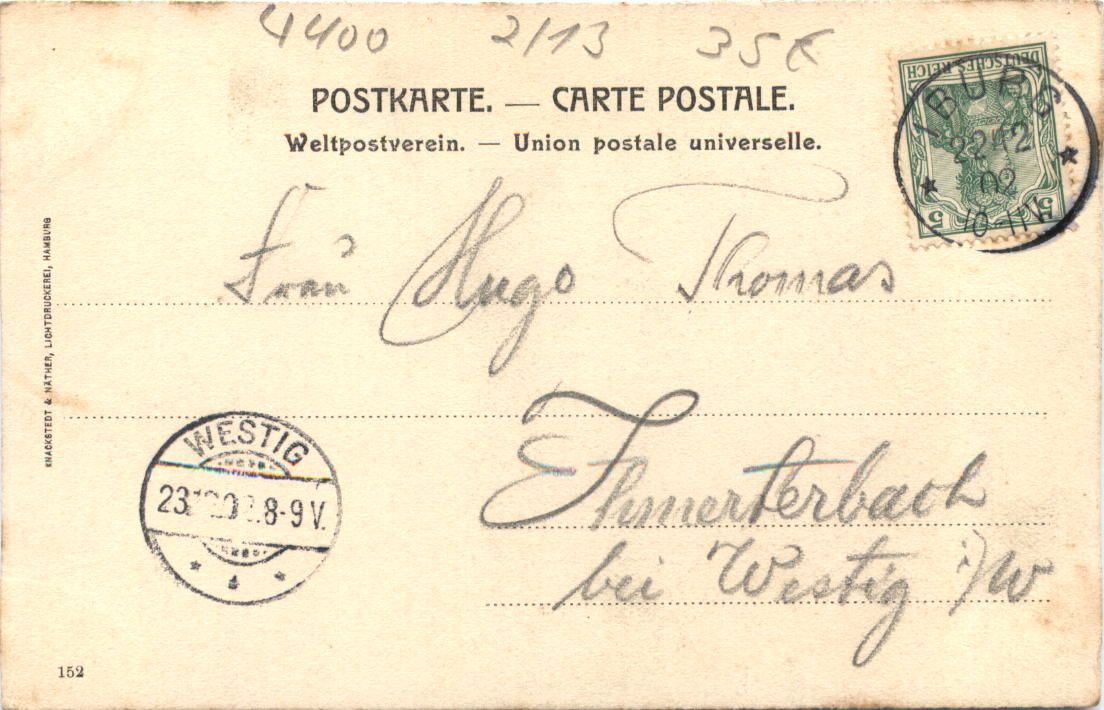 4400 2/13 35 €
POSTKARTE. — CARTE POSTALE.
Weltpostverein. — Union postale universelle.
DEUTSCHES REICH
5 5
IBURG
22 12
02
10-11V.
Frau Hugo Thomas
WESTIG
23.12.02.8-9V.
Ihmerterbach
bei Westig i/W
KNACKSTEDT & NÄTHER, LICHTDRUCKEREI, HAMBURG
152